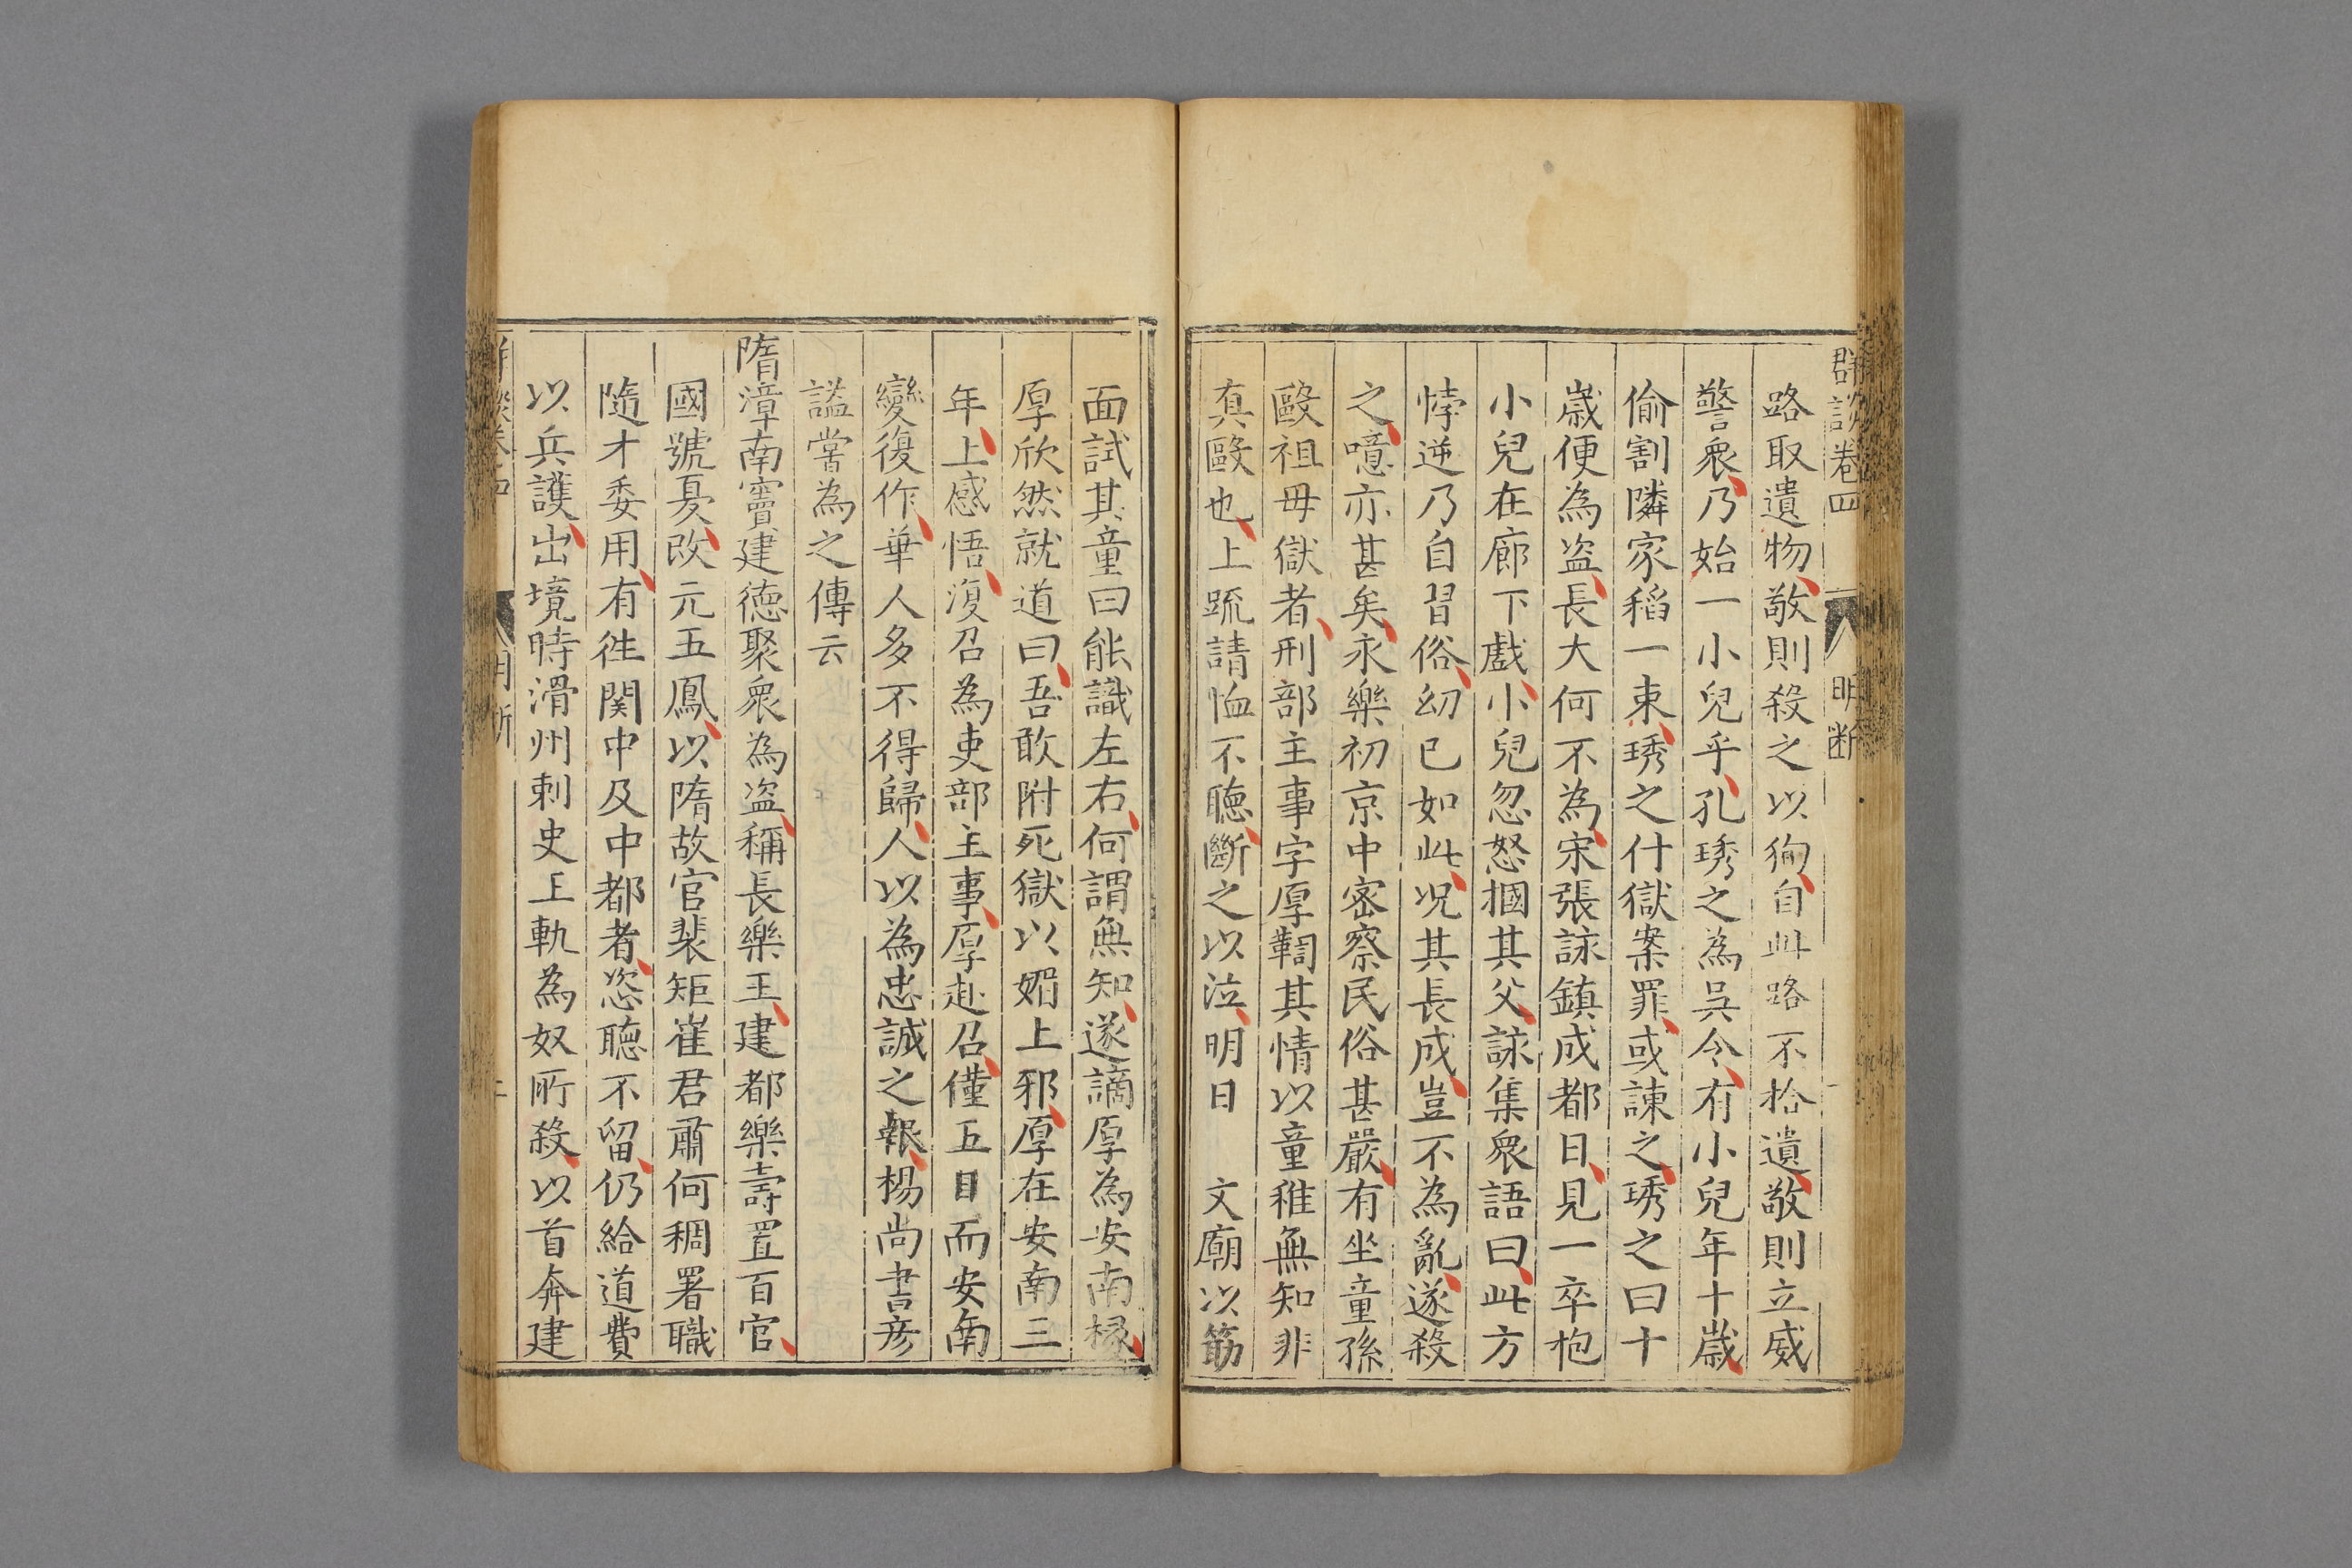 群談卷四 明断
路取遺物敬則殺之以狥自此路不拾遺敬則立威
警衆乃始一小兒乎孔琇之為吳令有小兒年十歳
偷割隣家稻一束琇之付獄案罪或諫之琇之曰十
歳便為盗長大何不為宋張詠鎮成都日見一卒抱
小兒在廊下戯小兒忽怒摑其父詠集衆語曰此方
悖逆乃自習俗幼已如此况其長成豈不為亂遂殺
之噫亦甚矣永樂初京中密察民俗甚嚴有坐童孫
毆祖母獄者刑部主事字厚鞫其情以童稚無知非
真毆也上䟽請恤不聴斷之以泣明日 文廟以筯
面試其童曰能識左右何謂無知遂謫厚為安南掾
厚欣然就道曰吾敢附死獄以媚上邪厚在安南三
年上感悟復召為吏部主事厚赴召僅五日而安南
變復作華人多不得歸人以為忠誠之報楊尚書彦
謐嘗為之傳云
隋漳南竇建德聚衆為盗稱長樂王建都樂壽置百官
國號夏改元五鳳以隋故官裴矩崔君肅何稠署職
隨才委用有徃関中及中都者恣聴不留仍給道費
以兵護出境時滑州刺史王軌為奴所殺以首奔建